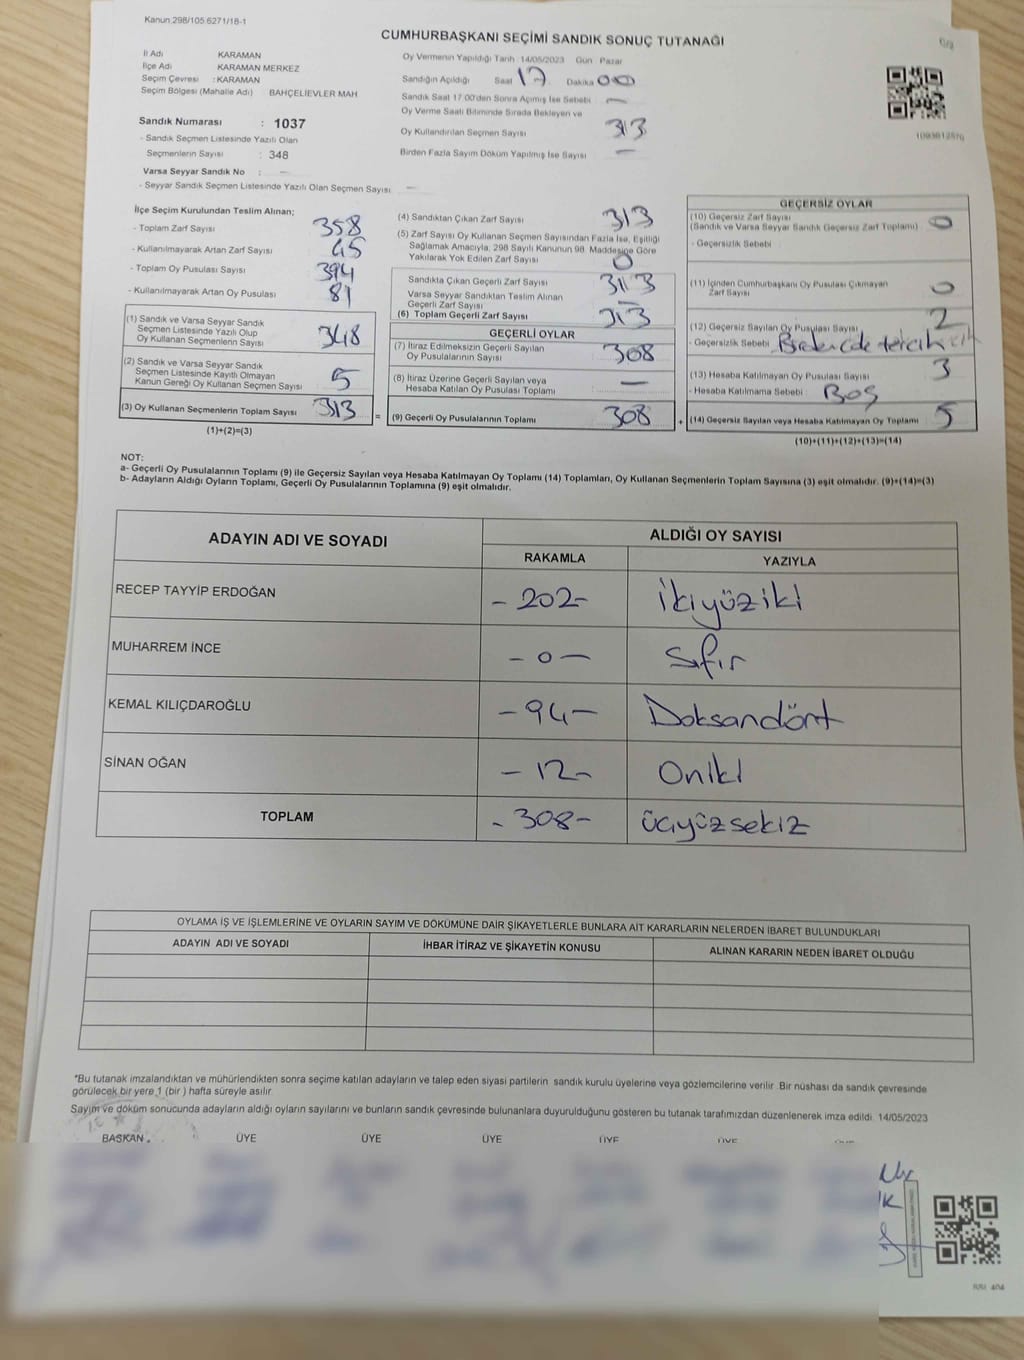 Kanun 298/105.6271/18-1
CUMHURBAŞKANI SEÇİMİ SANDIK SONUÇ TUTANAĞI
İl Adı KARAMAN
İlçe Adı KARAMAN MERKEZ
Seçim Çevresi : KARAMAN
Seçim Bölgesi (Mahalle Adı) BAHÇELİEVLER MAH
Sandık Numarası : 1037
- Sandık Seçmen Listesinde Yazılı Olan
Seçmenlerin Sayısı : 348
Varsa Seyyar Sandık No : —
- Seyyar Sandık Seçmen Listesinde Yazılı Olan Seçmen Sayısı —
Oy Vermenin Yapıldığı Tarih 14/05/2023 Gün Pazar
Sandığın Açıldığı Saat 17 Dakika 00
Sandık Saat 17.00'den Sonra Açımış İse Sebebi —
Oy Verme Saati Bitiminde Sırada Bekleyen ve
Oy Kullandırılan Seçmen Sayısı 313
Birden Fazla Sayım Döküm Yapılmış İse Sayısı —
İlçe Seçim Kurulundan Teslim Alınan;
- Toplam Zarf Sayısı 358
- Kullanılmayarak Artan Zarf Sayısı 45
- Toplam Oy Pusulası Sayısı 394
- Kullanılmayarak Artan Oy Pusulası 81
(1) Sandık ve Varsa Seyyar Sandık
Seçmen Listesinde Yazılı Olup
Oy Kullanan Seçmenlerin Sayısı 348
(2) Sandık ve Varsa Seyyar Sandık
Seçmen Listesinde Kayıtlı Olmayan
Kanun Gereği Oy Kullanan Seçmen Sayısı 5
(3) Oy Kullanan Seçmenlerin Toplam Sayısı 313 =
(1)+(2)=(3)
(4) Sandıktan Çıkan Zarf Sayısı 313
(5) Zarf Sayısı Oy Kullanan Seçmen Sayısından Fazla İse, Eşitliği
Sağlamak Amacıyla, 298 Sayılı Kanunun 98. Maddesine Göre
Yakılarak Yok Edilen Zarf Sayısı 0
Sandıkta Çıkan Geçerli Zarf Sayısı 313
Varsa Seyyar Sandıktan Teslim Alınan
Geçerli Zarf Sayısı —
(6) Toplam Geçerli Zarf Sayısı 313
GEÇERLİ OYLAR
(7) İtiraz Edilmeksizin Geçerli Sayılan
Oy Pusulalarının Sayısı 308
(8) İtiraz Üzerine Geçerli Sayılan veya
Hesaba Katılan Oy Pusulası Toplamı : —
(9) Geçerli Oy Pusulalarının Toplamı 308 +
GEÇERSİZ OYLAR
(10) Geçersiz Zarf Sayısı
(Sandık ve Varsa Seyyar Sandık Geçersiz Zarf Toplamı) 0
- Geçersizlik Sebebi
(11) İçinden Cumhurbaşkanı Oy Pusulası Çıkmayan
Zarf Sayısı 0
(12) Geçersiz Sayılan Oy Pusulası Sayısı 2
- Geçersizlik Sebebi tercih
(13) Hesaba Katılmayan Oy Pusulası Sayısı 3
- Hesaba Katılmama Sebebi : Boş
(14) Geçersiz Sayılan veya Hesaba Katılmayan Oy Toplamı 5
(10)+(11)+(12)+(13)=(14)
NOT:
a- Geçerli Oy Pusulalarının Toplamı (9) ile Geçersiz Sayılan veya Hesaba Katılmayan Oy Toplamı (14) Toplamları, Oy Kullanan Seçmenlerin Toplam Sayısına (3) eşit olmalıdır. (9)+(14)=(3)
b- Adayların Aldığı Oyların Toplamı, Geçerli Oy Pusulalarının Toplamına (9) eşit olmalıdır.
ADAYIN ADI VE SOYADI ALDIĞI OY SAYISI
RAKAMLA YAZIYLA
RECEP TAYYİP ERDOĞAN - 202 - İkiyüziki
MUHARREM İNCE - 0 - Sıfır
KEMAL KILIÇDAROĞLU - 94 - Doksandört
SİNAN OĞAN - 12 - Oniki
TOPLAM - 308 - üçyüzsekiz
OYLAMA İŞ VE İŞLEMLERİNE VE OYLARIN SAYIM VE DÖKÜMÜNE DAİR ŞİKAYETLERLE BUNLARA AİT KARARLARIN NELERDEN İBARET BULUNDUKLARI
ADAYIN ADI VE SOYADI İHBAR İTİRAZ VE ŞİKAYETİN KONUSU ALINAN KARARIN NEDEN İBARET OLDUĞU
*Bu tutanak imzalandıktan ve mühürlendikten sonra seçime katılan adayların ve talep eden siyasi partilerin sandık kurulu üyelerine veya gözlemcilerine verilir. Bir nüshası da sandık çevresinde
görülecek bir yere 1 (bir ) hafta süreyle asılır
Sayım ve döküm sonucunda adayların aldığı oyların sayılarını ve bunların sandık çevresinde bulunanlara duyurulduğunu gösteren bu tutanak tarafımızdan düzenlenerek imza edildi. 14/05/2023
BAŞKAN ÜYE ÜYE ÜYE ÜYE ÜYE